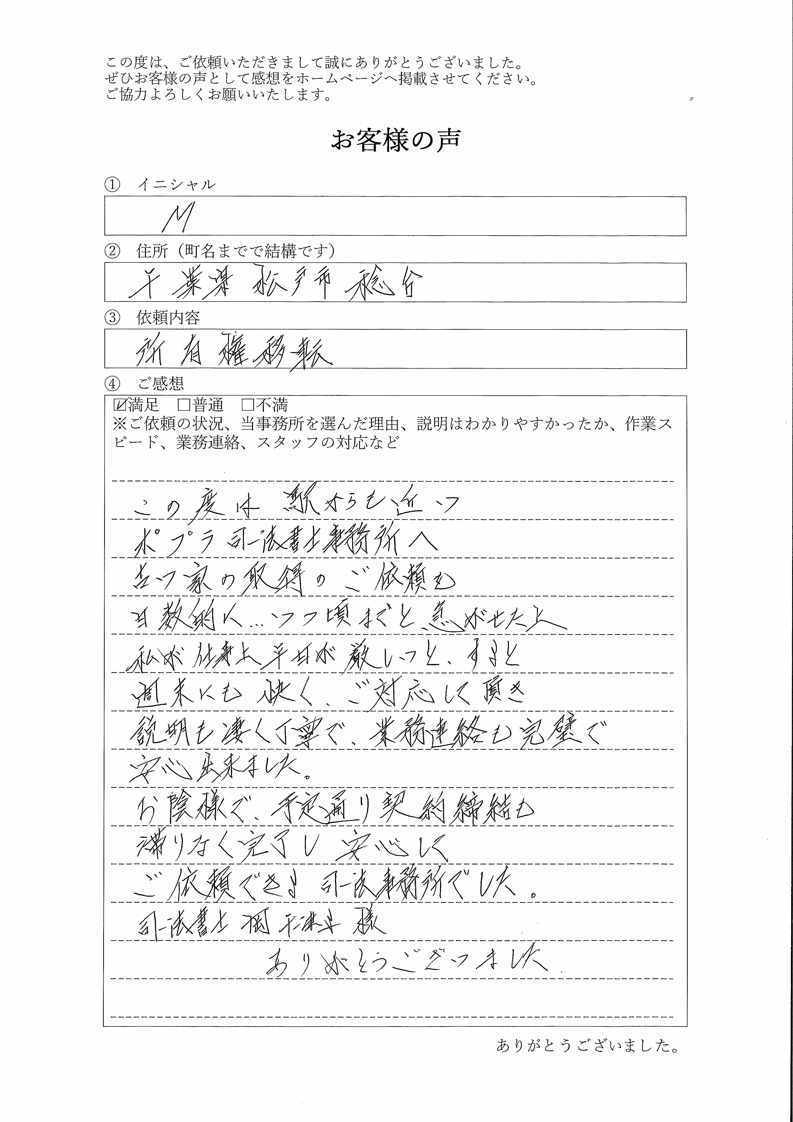 この度は、ご依頼いただきまして誠にありがとうございました。
ぜひお客様の声として感想をホームページへ掲載させてください。
ご協力よろしくお願いいたします。
お客様の声
① イニシャル
M
② 住所（町名までで結構です）
千葉県 松戸市 稔台
③ 依頼内容
所有権移転
④ ご感想
☑満足 □普通 □不満
※ご依頼の状況、当事務所を選んだ理由、説明はわかりやすかったか、作業ス
ピード、業務連絡、スタッフの対応など
この度は 駅からも近い
ポプラ司法書士事務所へ
古い家の取得のご依頼も
日数的に…いつ頃までと急がせた上
私が仕事上平日が厳しいと、すると
週末にも快く、ご対応して頂き
説明も凄く丁寧で、業務連絡も完璧で
安心出来ました。
お陰様で、予定通り契約締結も
滞りなく完了し 安心して
ご依頼できる 司法事務所でした。
司法書士 様
ありがとうございました
ありがとうございました。